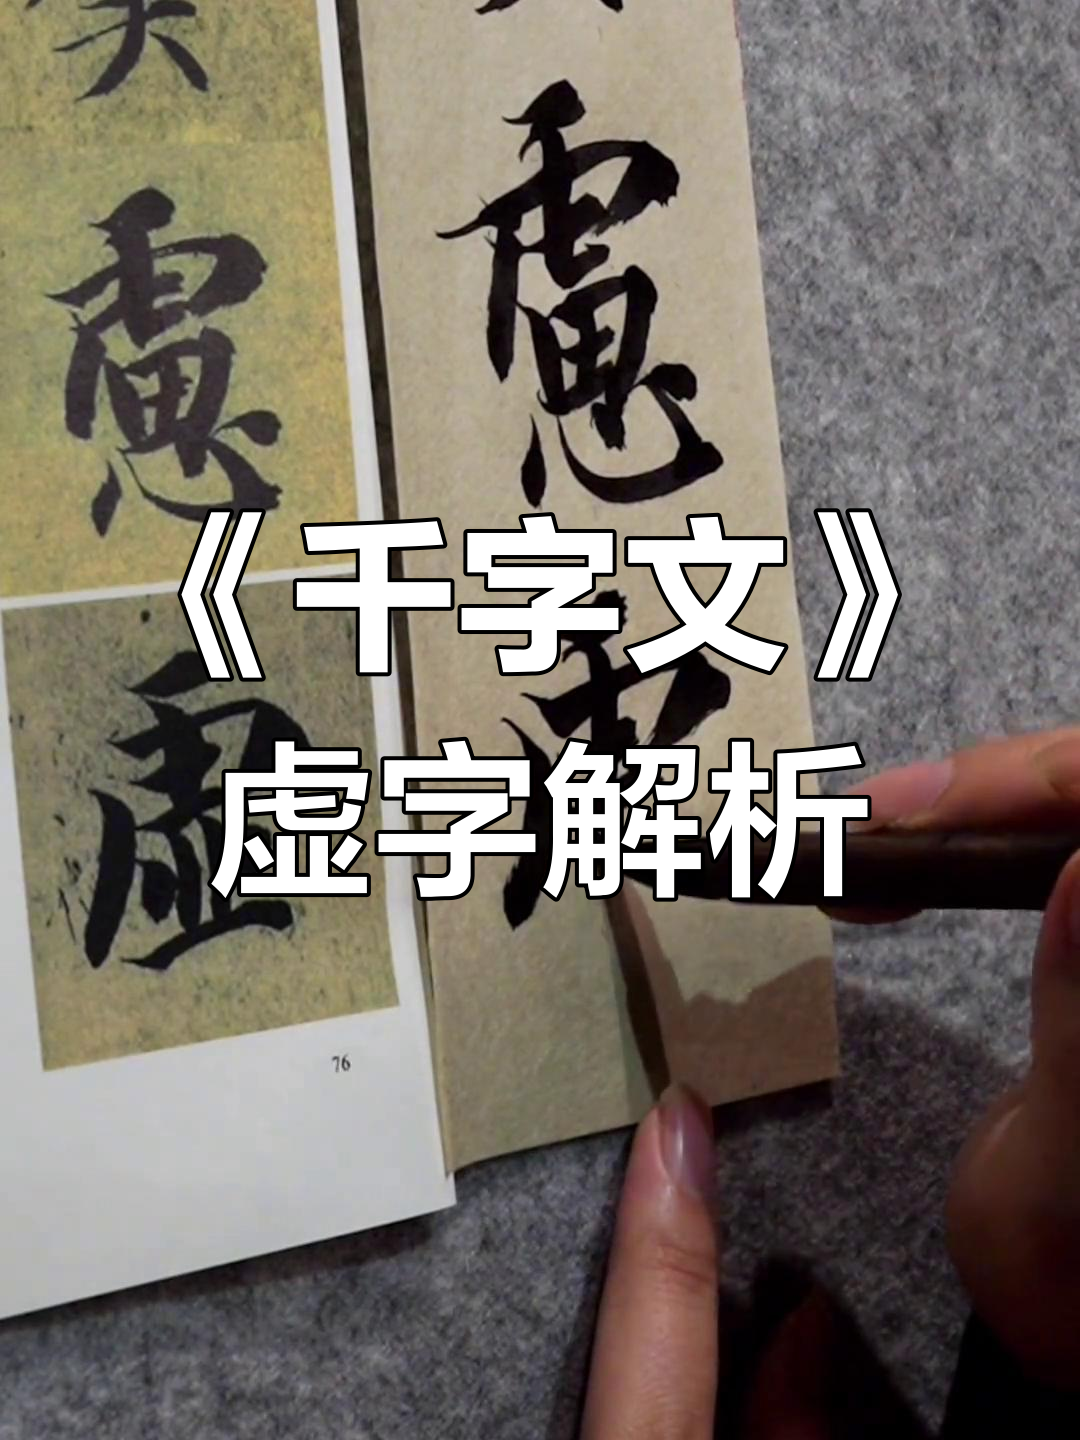 《千字文》
虚字解析
慮
慮
虛
76